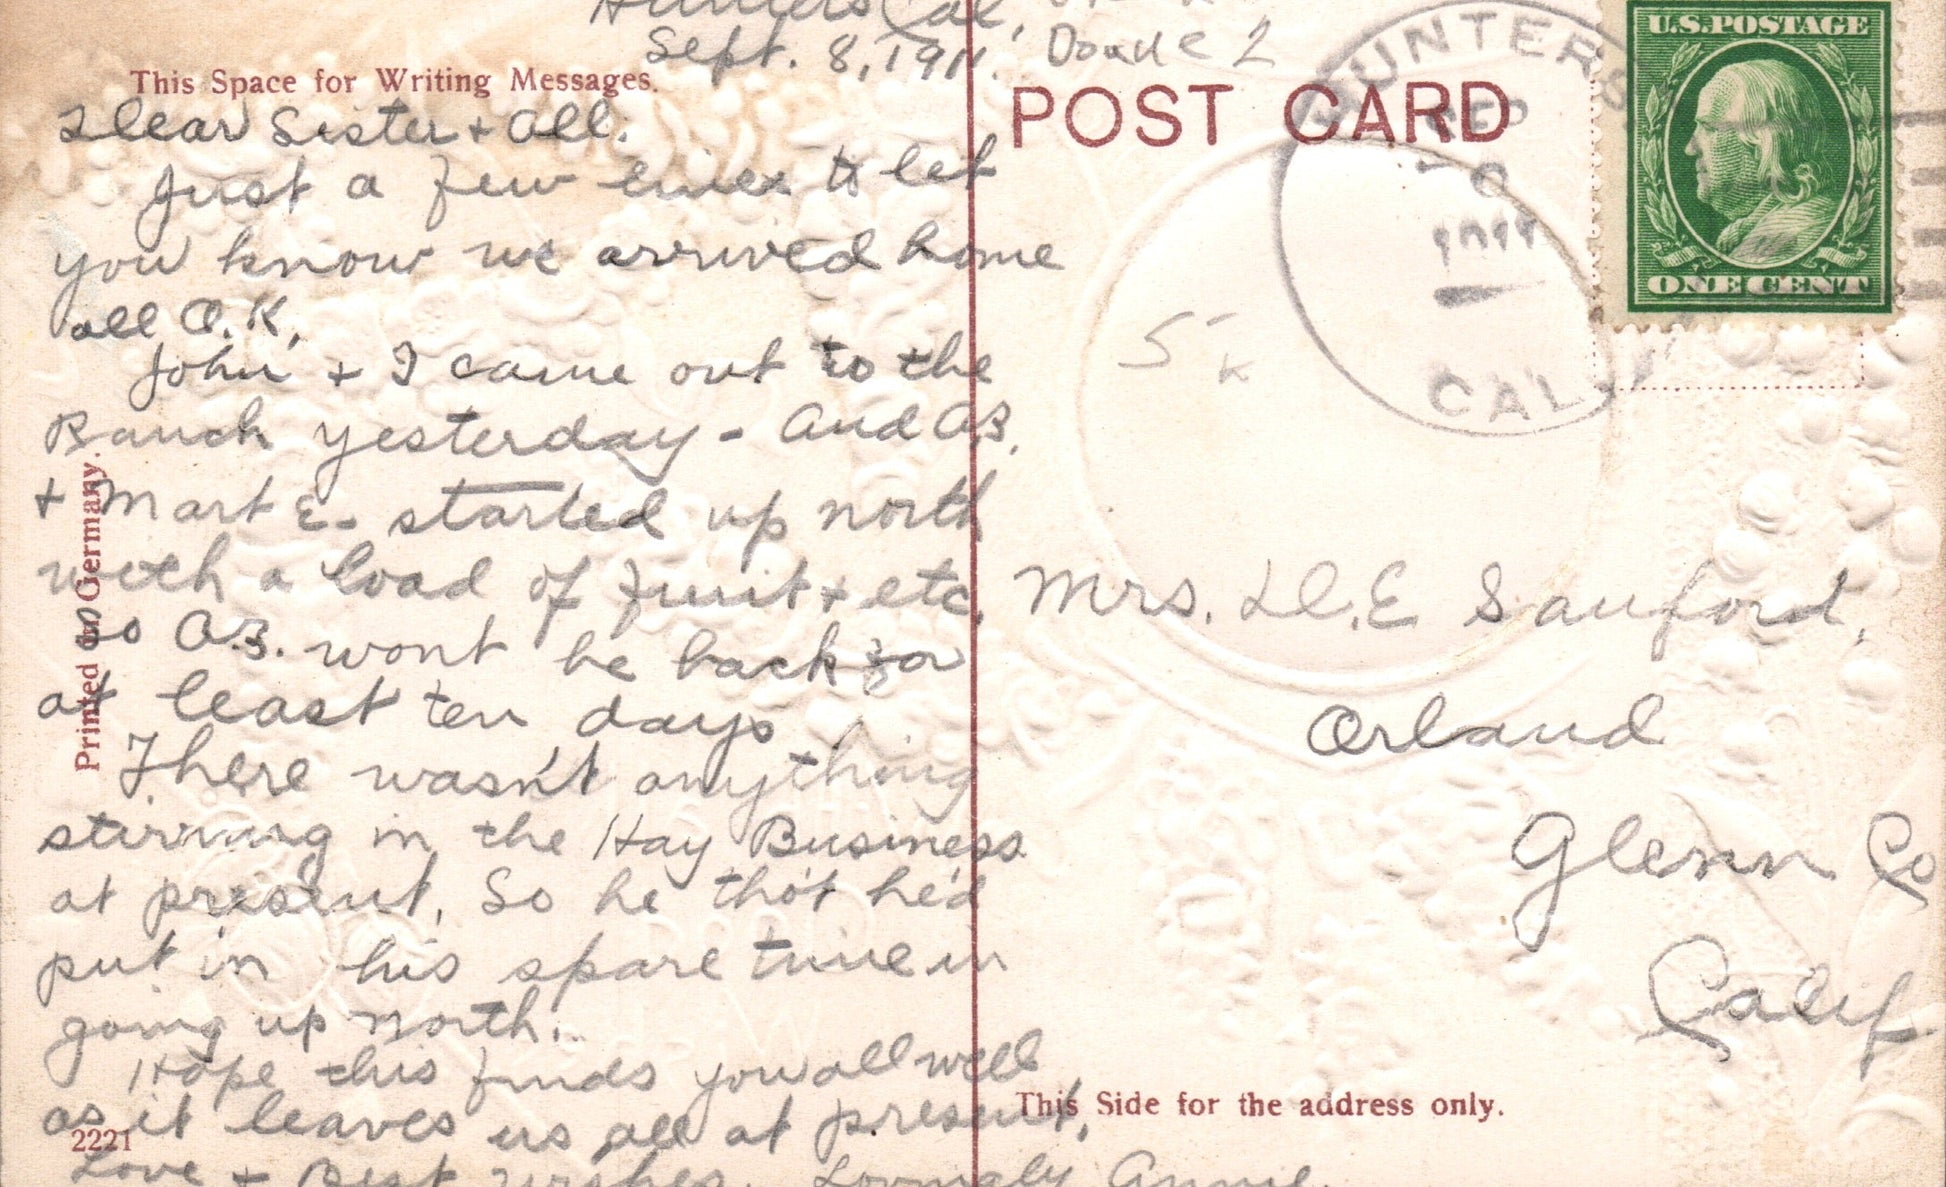 Hunters Cal,
Sept. 8, 1911.
Doane 2
This Space for Writing Messages.
Dear Sister + all.
Just a few lines to let
you know we arrived home
all O.K.
John + I came out to the
Ranch yesterday - and A.B.
+ Mart E. started up north
with a load of fruit + etc.
so A.B. wont be back for
at least ten days
There wasn't anything
stirring in the Hay Business
at present. So he tho't he'd
put in his spare time in
going up north.
Hope this finds you all well
as it leaves us all at present.
Love + Best wishes. Lovingly Annie.
Printed in Germany.
2221
POST CARD
HUNTERS
SEP
CAL.
U.S. POSTAGE
ONE CENT
5-
K
Mrs. D.E Sanford,
Orland
Glenn Co
Calif
This Side for the address only.